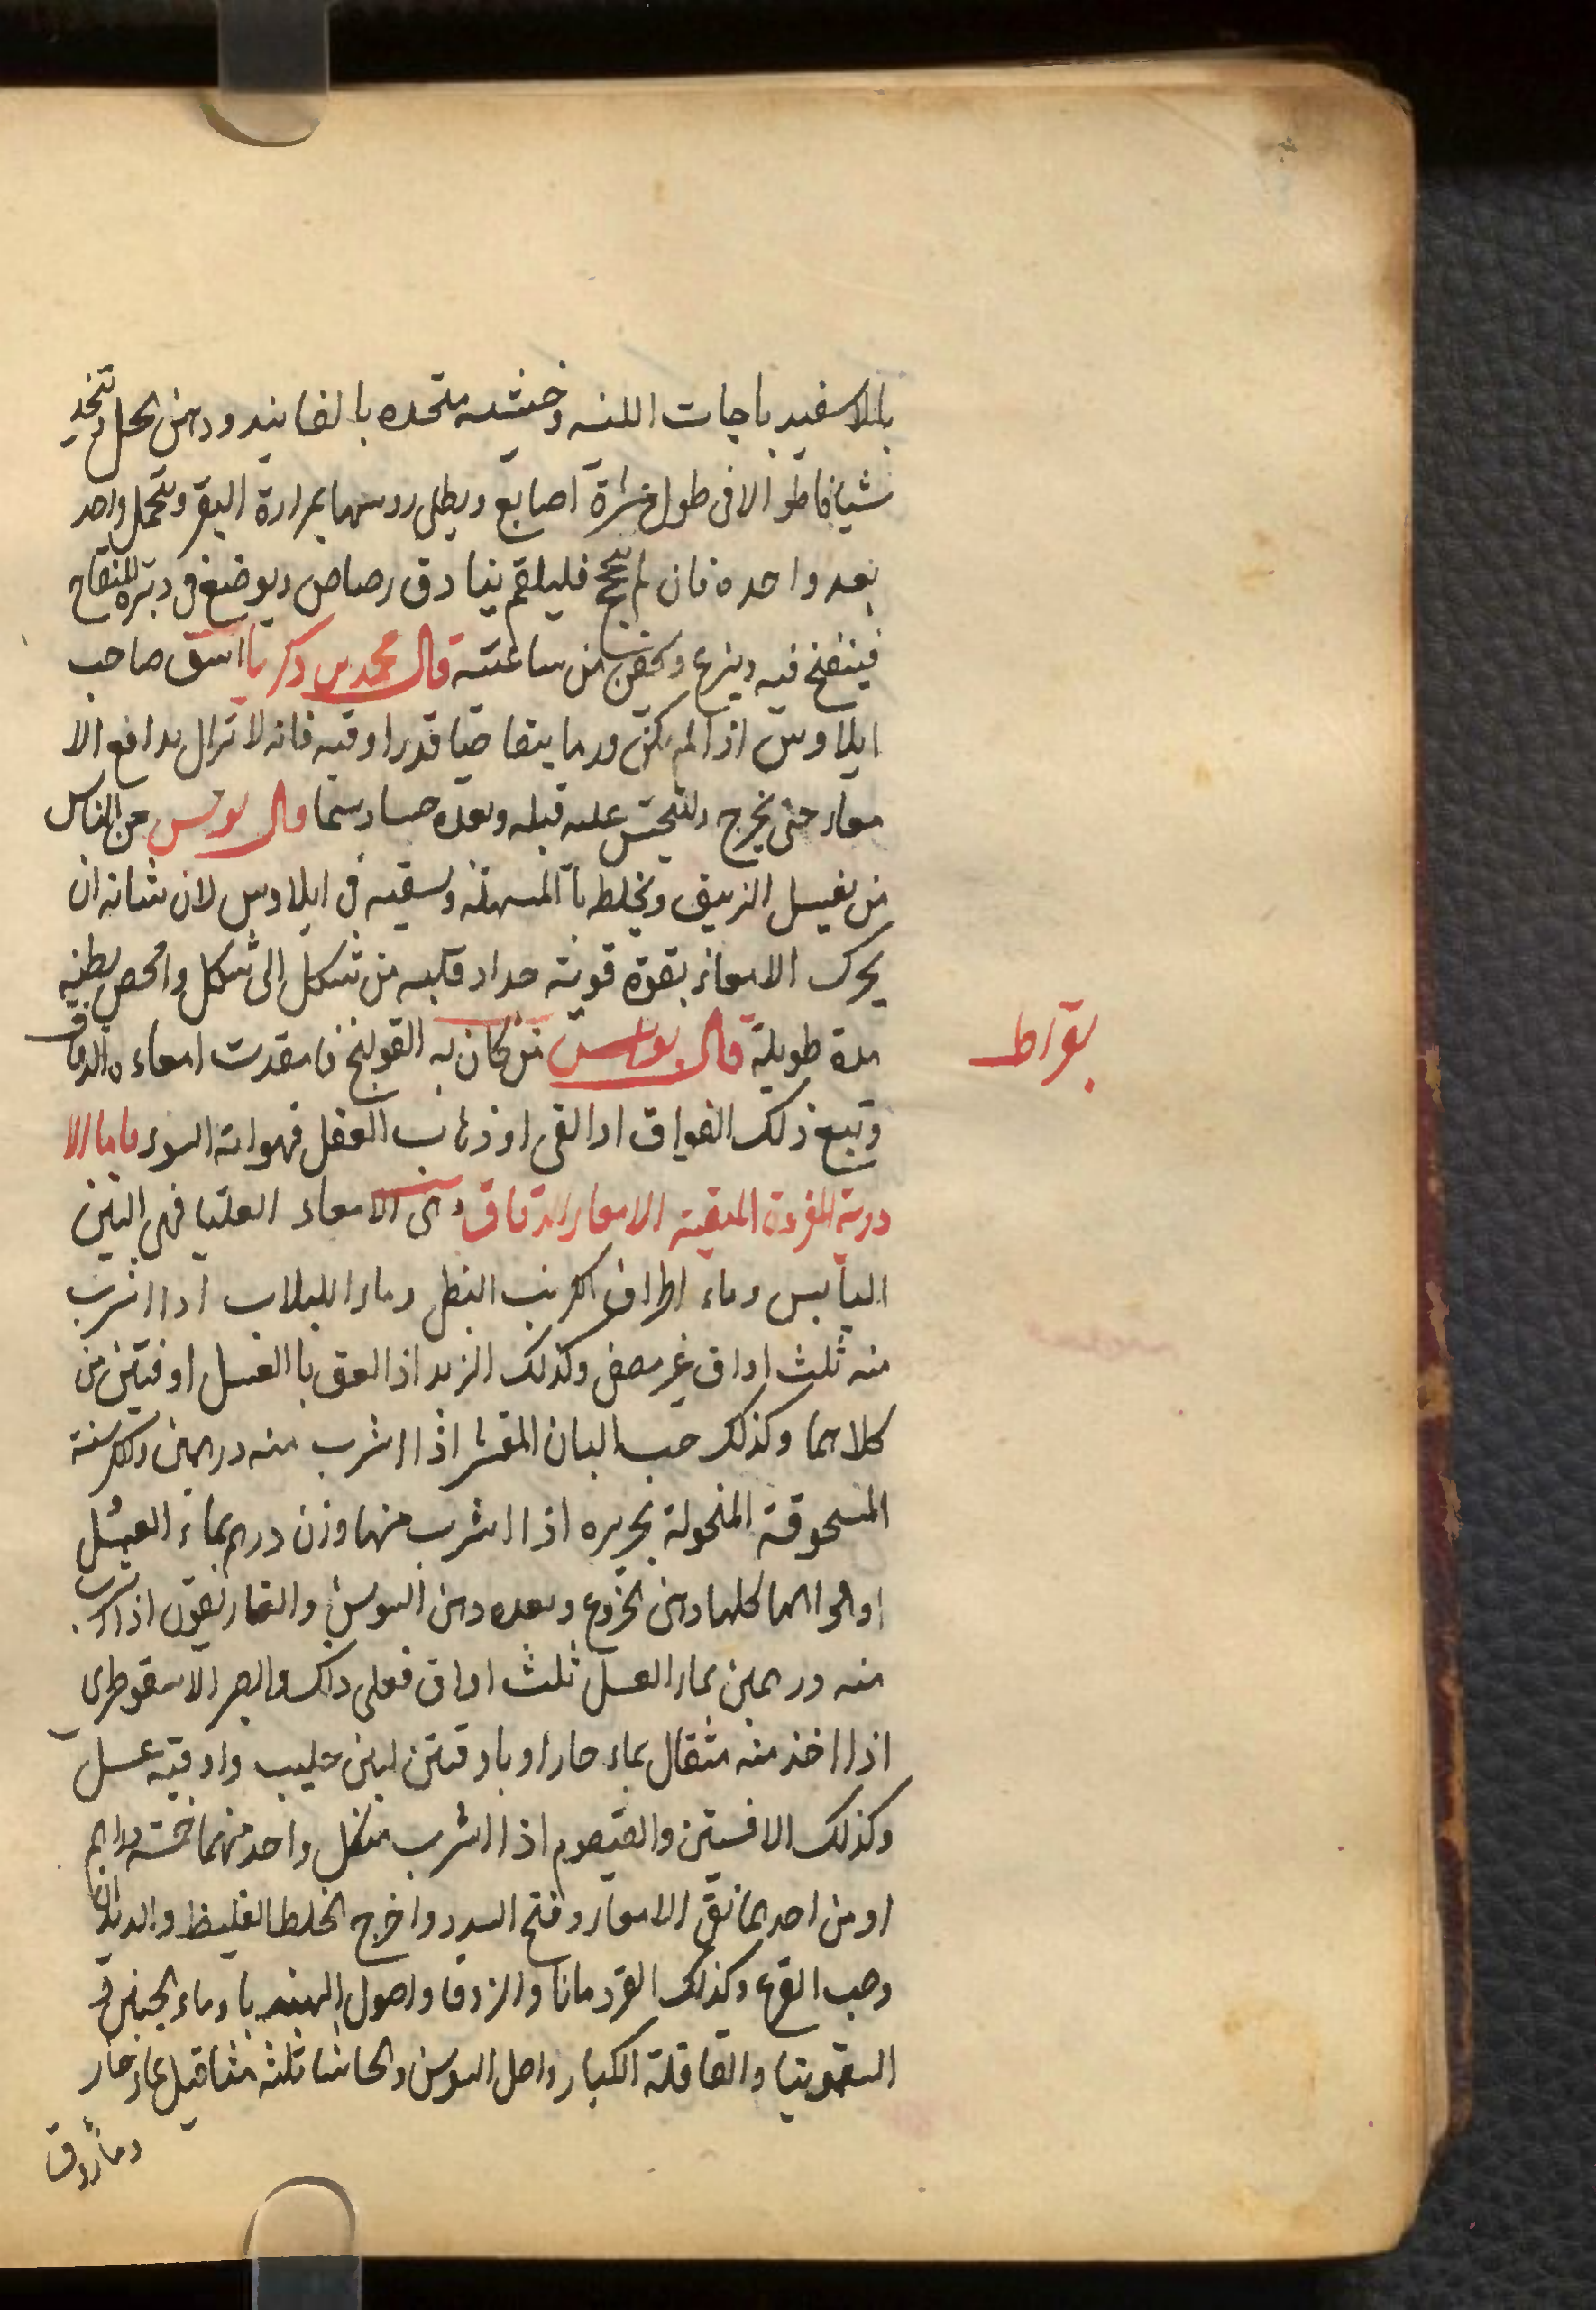 بالاسفيدباجات اللينه وخشنه متحده بالفانيد ودهن الحل وتتخذ
شيافا طوالا فى طول عشرة اصابع ويطلى روسها بمرارة البقر ويتحمل واحد
بعد واحده فان لم ينجح فليلقم بنادق رصاص ويوضع فى دبره المنفاخ
فينفخ فيه وينزع ويحقن من ساعته قال محمد بن زكريا اسق صاحب
ايلاوس اذا لم يكن ورما بيقا صيا قدر اوقيه فانه لا تزال يدافع الا
معاء حتى يخرج وليتحتس عليه قبله وبعده حساء دسما قال بولس من الناس
من يغسل الزيبق ويخلط بالمسهله ويسقيه فى ايلاوس لان شانه ان
يحرك الامعاء بقوة قوية حدا وقلبه من شكل الى شكل وامخض بطنه
مدة طويلة قال بولس من كان به القولنج فامعدت امعاءه الدقاق
وتبع ذلك الفواق او القى او ذهاب العقل فهو اية السوء فاما الا
دوية المفردة المنقية الامعاء الدقاق وهى الامعاء العليا فهى التين
اليابس وماء اطراف الكرنب النبطى وماء اللبلاب اذا شرب
منه ثلث اواق غير مصفى وكذلك الزبد اذا لعق بالعسل اوقيتين من
كلاهما وكذلك حب البان المقشر اذا اشرب منه درهمين والكرسنة
المسحوقة المنخولة بحريره اذا اشرب منها وزن درهم بماء العسل
اوالحوالها كلها دهن الخروع وبعده دهن السوسن والغاريقون اذا شرب
منه درهمين بماء العسل ثلث اواق فعلى ذلك والصبر الاسقوطرى
اذا اخذ منه مثقال بماء حار او باوقيتين لبن حليب واوقيه عسل
وكذلك الافسنتين والقيصوم اذا اشرب من كل واحد منهما خمسة دراهم
او من احدهما نقى الامعاء وفتح السدد واخرج الخلط الغليظ والديدان
وحب القرع وكذلك القردمانا والزوفا واصول الهندبا وماء الجبن فى
السقمونيا والقاقلة الكبار واصل السوسن والحاشا ثلثه مثاقيل بماء حار
بقراط